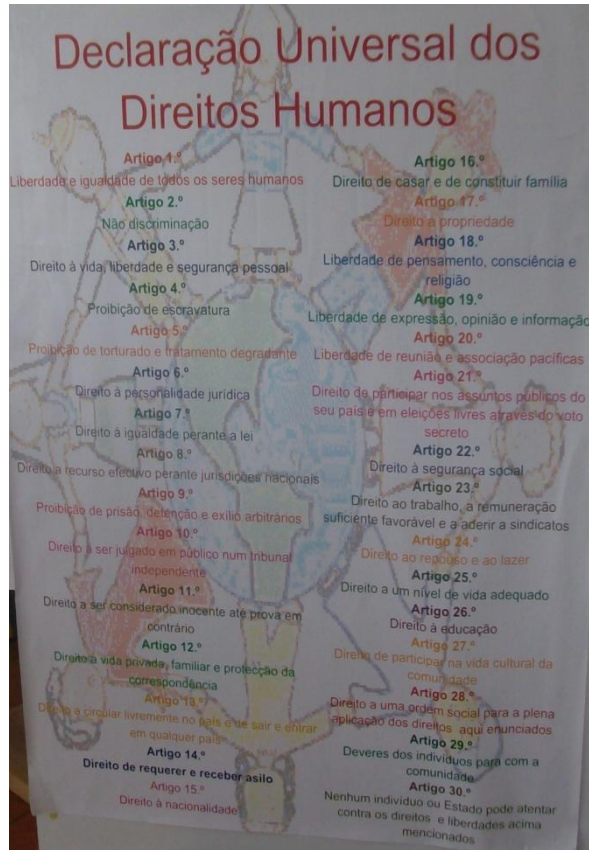 Declaração Universal dos
Direitos Humanos
Artigo 1.º
Liberdade e igualdade de todos os seres humanos
Artigo 2.º
Não discriminação
Artigo 3.º
Direito à vida, liberdade e segurança pessoal
Artigo 4.º
Proibição de escravatura
Artigo 5.º
Proibição de torturado e tratamento degradante
Artigo 6.º
Direito à personalidade jurídica
Artigo 7.º
Direito à igualdade perante a lei
Artigo 8.º
Direito a recurso efectivo perante jurisdições nacionais
Artigo 9.º
Proibição de prisão, detenção e exílio arbitrários
Artigo 10.º
Direito a ser julgado em público num tribunal
independente
Artigo 11.º
Direito a ser considerado inocente até prova em
contrário
Artigo 12.º
Direito à vida privada, familiar e protecção da
correspondência
Artigo 13.º
Direito a circular livremente no país e de sair e entrar
em qualquer país
Artigo 14.º
Direito de requerer e receber asilo
Artigo 15.º
Direito à nacionalidade
Artigo 16.º
Direito de casar e de constituir família
Artigo 17.º
Direito a propriedade
Artigo 18.º
Liberdade de pensamento, consciência e
religião
Artigo 19.º
Liberdade de expressão, opinião e informação
Artigo 20.º
Liberdade de reunião e associação pacíficas
Artigo 21.º
Direito de participar nos assuntos públicos do
seu país e em eleições livres através do voto
secreto
Artigo 22.º
Direito à segurança social
Artigo 23.º
Direito ao trabalho, a remuneração
suficiente favorável e a aderir a sindicatos
Artigo 24.º
Direito ao repouso e ao lazer
Artigo 25.º
Direito a um nível de vida adequado
Artigo 26.º
Direito à educação
Artigo 27.º
Direito de participar na vida cultural da
comunidade
Artigo 28.º
Direito a uma ordem social para a plena
aplicação dos direitos aqui enunciados
Artigo 29.º
Deveres dos indivíduos para com a
comunidade
Artigo 30.º
Nenhum indivíduo ou Estado pode atentar
contra os direitos e liberdades acima
mencionados